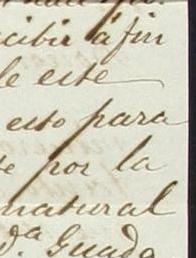 cibir á fin
le este
esto para
te por la
natural
d.ª Guada